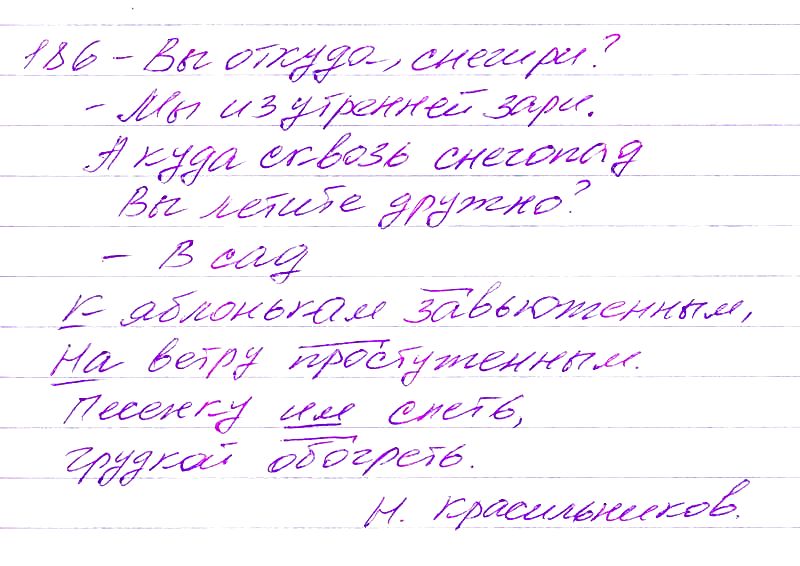 186 – Вы откуда, снегири?
- Мы из утренней зари.
А куда сквозь снегопад
Вы летите дружно?
– В сад
К яблонькам завьюженным,
На ветру простуженным.
Песенку им спеть,
грудкой обогреть.
Н. Красильников.